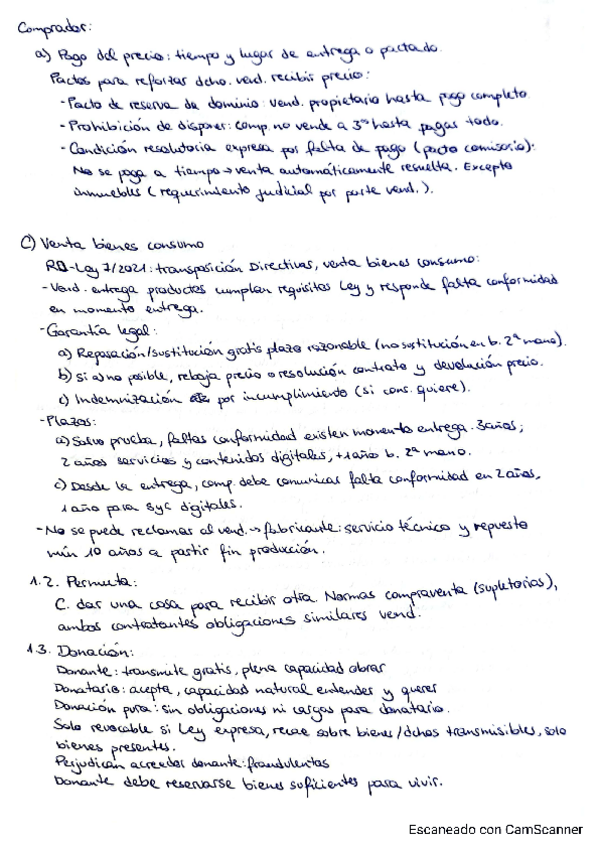 Comprador:
a) Pago del precio: tiempo y lugar de entrega o pactado.
Pactos para reforzar dcho. vend. recibir precio:
- Pacto de reserva de dominio: vend. propietario hasta pago completo.
- Prohibición de disponer: comp. no vende a 3º hasta pagar todo.
- Condición resolutoria expresa por falta de pago (pacto comisorio):
No se paga a tiempo → venta automáticamente resuelta. Excepto
inmuebles (requerimiento judicial por parte vend.).
C) Venta bienes consumo
RD-Ley 7/2021: transposición Directivas, venta bienes consumo:
- Vend. entrega productos cumplan requisitos Ley y responde falta conformidad
en momento entrega.
- Garantía legal:
a) Reparación/sustitución gratis plazo razonable (no sustitución en b. 2ª mano).
b) Si a) no posible, rebaja precio o resolución contrato y devolución precio.
c) Indemnización por incumplimiento (si cons. quiere).
- Plazos:
a) Salvo prueba, faltas conformidad existen momento entrega. 3 años;
2 años servicios y contenidos digitales, +1 año b. 2ª mano.
c) Desde la entrega, comp. debe comunicar falta conformidad en 2 años,
1 año para S y C digitales.
- No se puede reclamar al vend. → fabricante: servicio técnico y repuesto
mín 10 años a partir fin producción.
1.2. Permuta:
C. dar una cosa para recibir otra. Normas compraventa (supletorias),
ambos contratantes obligaciones similares vend.
1.3. Donación:
Donante: transmite gratis, plena capacidad obrar
Donatario: acepta, capacidad natural entender y querer
Donación pura: sin obligaciones ni cargas para donatario.
Solo revocable si Ley expresa, recae sobre bienes/dchos transmisibles, solo
bienes presentes.
Perjudican acreedor donante: fraudulentas
Donante debe reservarse bienes suficientes para vivir.
Escaneado con CamScanner